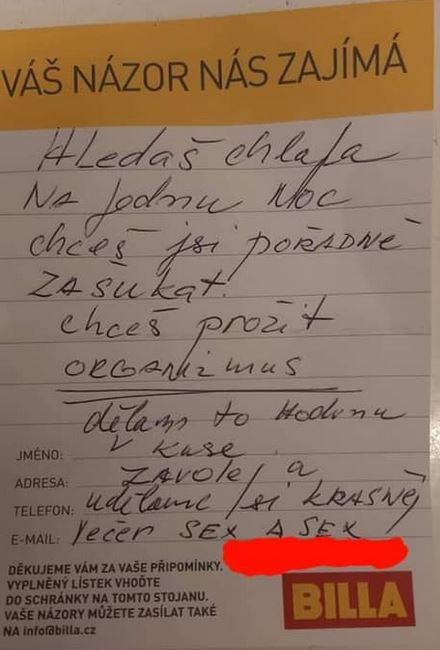 VÁŠ NÁZOR NÁS ZAJÍMÁ
Hledaš chlapa
Na jednu Noc
chceš jsi pořadně
zašukat.
chceš prožit
ORGANizmus
dělams to Hodinu
v kuse.
JMÉNO:
ZAVOLej a
ADRESA:
uděláme jsi KRASNEj
TELEFON:
Večer SEX A SEX
E-MAIL:
DĚKUJEME VÁM ZA VAŠE PŘIPOMÍNKY.
VYPLNĚNÝ LÍSTEK VHOĎTE
DO SCHRÁNKY NA TOMTO STOJANU.
VAŠE NÁZORY MŮŽETE ZASÍLAT TAKÉ
NA info@billa.cz
BILLA